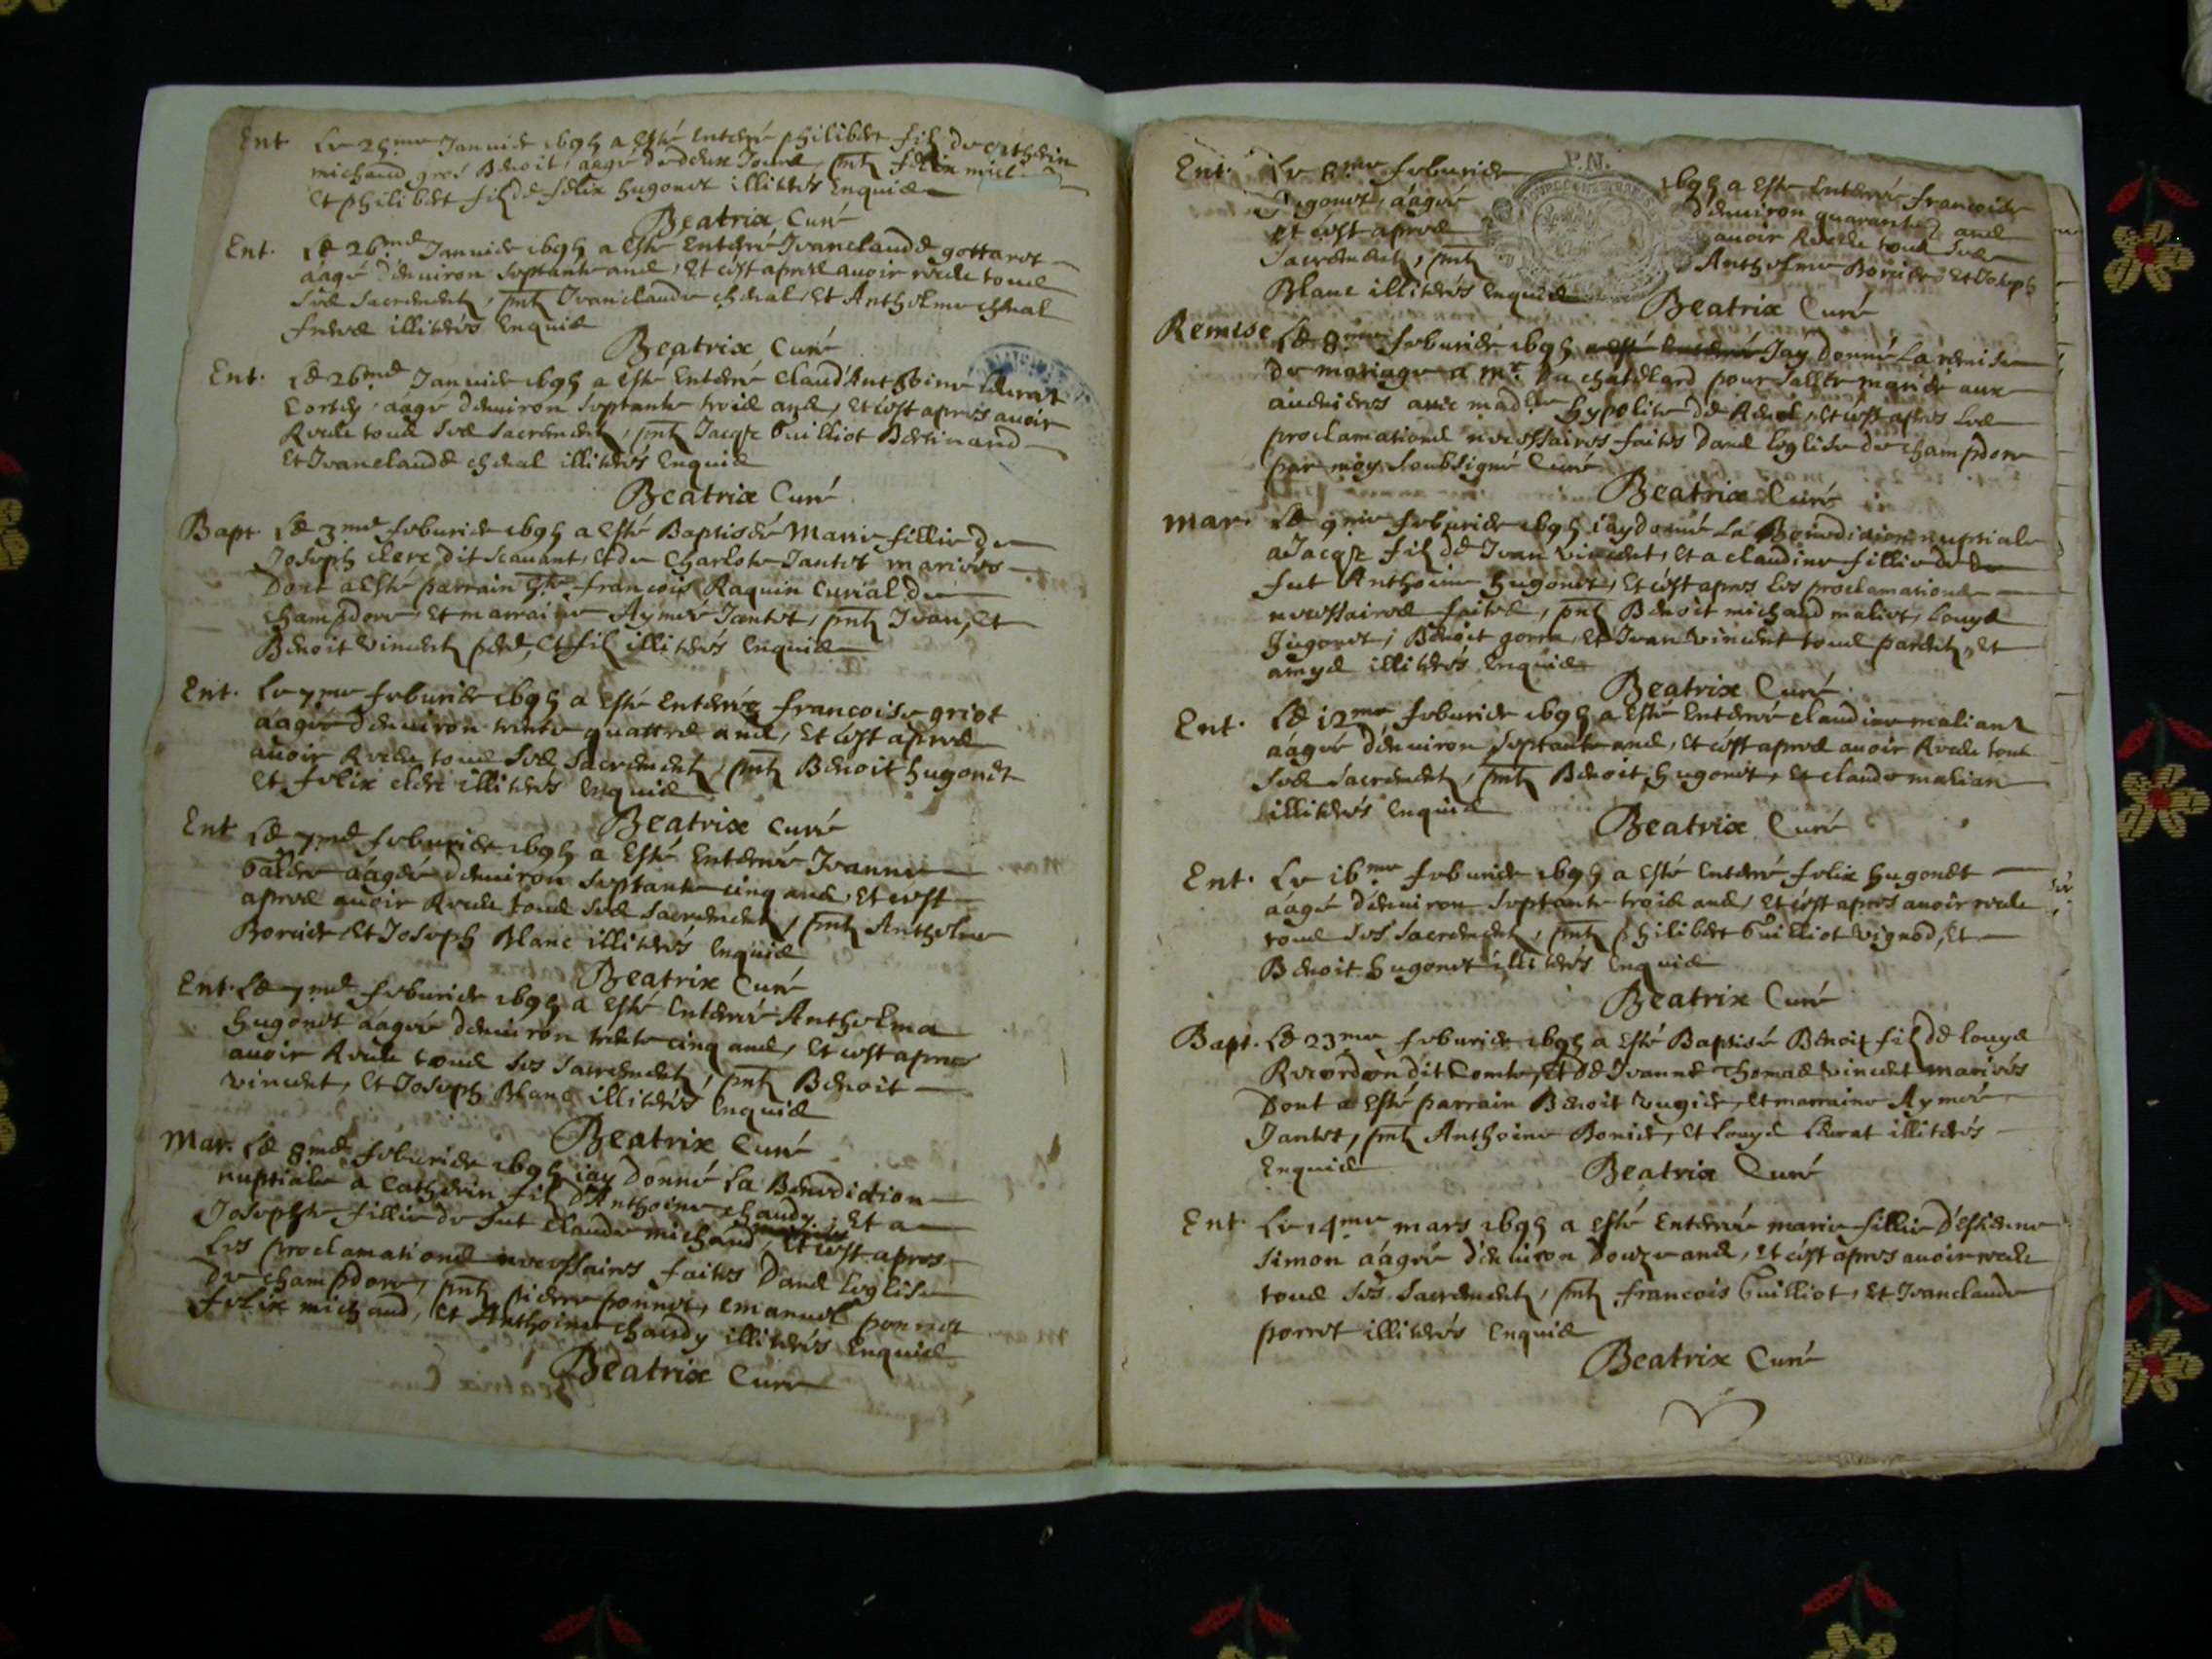 Ent Le 25.me Januier 1695 a esté enterré philibert fils de catherin
michaud gros Benoit, aagé de deux Jours, pnts felix mich
et philibert fils de felix hugonet illiterés enquis
Beatrix Curé
Ent. Le 26.me Januier 1695 a esté enterré Jeanclaude gottaret
áagé d'enuiron septante ans, et c'est apres auoir receu tous
ses sacrements, pnts Jeanclaude cheral, et Anthelme cheral
freres illiterés enquis
Beatrix Curé
Ent. Le 26.me Januier 1695 a esté enterré claud'Anthoine
aagé d'enuiron septante trois ans, et c'est apres auoir
Receu tous ses sacrements, pnts Jacq.e Guilliot Bertinand
et Jeanclaude cheral illiterés enquis
Beatrix Curé
Bapt. Le 3.me feburier 1695 a esté Baptisée Marie fillie de
Joseph clerc dit scauant, et de Charlote Jantet mariés
Dont a esté parrain h.te françois Raquin curial de
champdore, et marraine Aymée Jantet, pnts Jean, et
Benoit vincent pere, et fils illiterés enquis
Ent. Le 7.me feburier 1695 a esté enterrée francoise griot
áagée d'enuiron trente quattre ans, et c'est apres
auoir Receu tous ses sacrements, pnts Benoit hugonet
et felix clerc illiterés enquis
Beatrix curé
Ent Le 7.me feburier 1695 a esté enterrée Jeanne
áagée d'enuiron septante cinq ans, et c'est
apres auoir Receu tous ses sacrements, pnts Anthelme
Borcier et Joseph Blanc illiterés enquis
Beatrix Curé
Ent. Le 7.me feburier 1695 a esté enterrée Anthelma
hugonet áagée d'enuiron trente cinq ans, et c'est apres
auoir Receu tous ses sacrements, pnts Benoit
vincent, et Joseph Blanc illiterés enquis
Beatrix Curé
Mar. Le 8.me feburier 1695 iay donné la Benediction
nuptiale a Catherin fils d'Anthoine chaudy, et a
Josephte fillie de fut claude michaud, et c'est apres
les proclamations necessaires faites dans leglise
de champdore, pnts pierre ponnet, emanuel ponnet
felix michaud, et Anthoine chaudy illiterés enquis
Beatrix Curé
P.N.
Ent. Le 8.me feburier 1695 a esté enterrée francoise
hugonet, áagée d'enuiron quarante ans
et c'est apres auoir Receu tous ses
sacrements, pnts Anthelme Borcier, et Joseph
Blanc illiterés enquis
Beatrix Curé
Remise Le 8.me feburier 1695 a esté enterré Jay donné La remise
de mariage a m.r Du chatelard pour saller marier aux
audeuieres auec mad.lle hypolite de et c'est apres les
proclamations necessaires faites dans leglise de champdore
par moy soubsigné Curé
Beatrix Curé
mar. Le 9.me feburier 1695 iay donné La Benediction nuptiale
a Jacq.e fils de Jean vincent, et a claudine fillie de
fut Anthoine hugonet, et c'est apres les proclamations
necessaires faites, pnts Benoit michaud maliet, Louys
hugonet, Benoit gorra, et Jean vincent tous parents, et
amys illiterés enquis
Beatrix Curé
Ent. Le 12.me feburier 1695 a esté enterrée claudine malian
áagée d'enuiron septante ans, et c'est apres auoir Receu tous
ses sacrements, pnts Benoit hugonet, et claude malian
illiterés enquis
Beatrix Curé
Ent. Le 16.me feburier 1695 a esté enterré felix hugonet
áagé d'enuiron septante trois ans, et c'est apres auoir receu
tous ses sacrements, pnts philibert Guilliot vignod, et
Benoit hugonet illiterés enquis
Beatrix Curé
Bapt. Le 23.me feburier 1695 a esté Baptisé Benoit fils de louys
Reuerdon dit Comte, et de Jeanne Thomas vincent mariés
Dont a esté parrain Benoit et marraine Aymée
Jantet, pnts Anthoine et Louys illiterés
enquis
Beatrix Curé
Ent. Le 14.me mars 1695 a esté enterrée marie fillie d'estienne
simon áagée d'enuiron douze ans, et c'est apres auoir receu
tous ses sacrements, pnts francois Guilliot, et Jeanclaude
porret illiterés enquis
Beatrix Curé